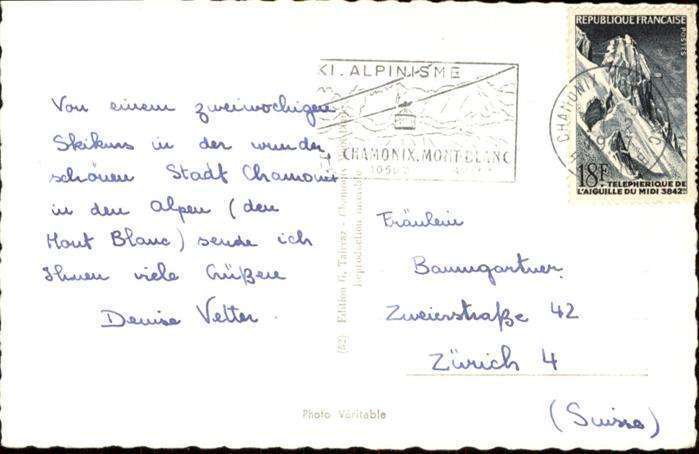 Von einem zweiwochigen
Skikurs in der wunder,
schönen Stadt Chamonix
in den Alpen (den
Mont Blanc) sende ich
Ihnen viele Grüßen
Denise Vetter.
KI. ALPINISME
CHAMONIX. MONT-BLANC
CHAMONIX
REPUBLIQUE FRANÇAISE
POSTES
18F
TELEPHERIQUE DE
L'AIGUILLE DU MIDI 3842m
(82) Edition G. Tairraz - Chamonix
Reproduction interdite
Fräulein
Baumgartner
Zweierstraße 42
Zürich 4
(Suisse)
Photo Véritable